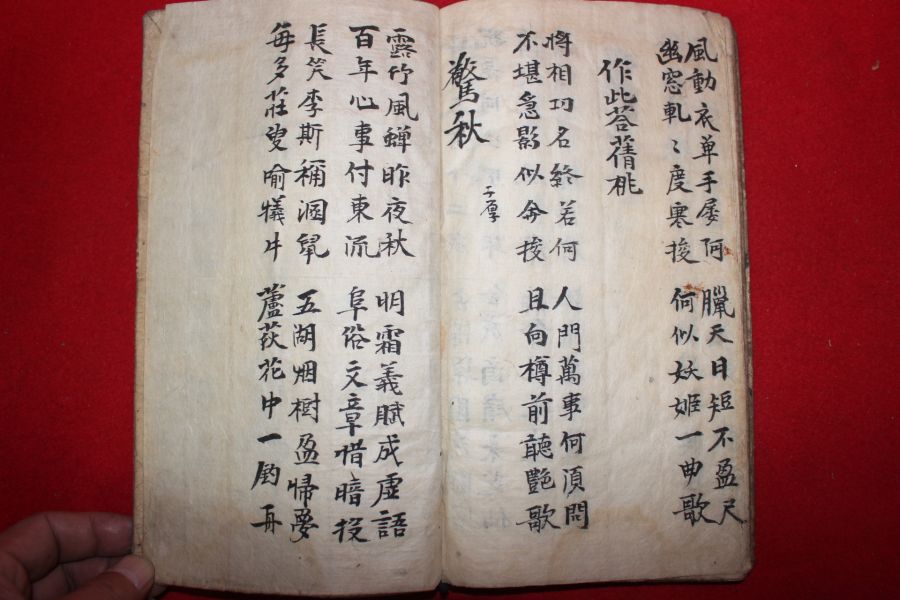 風動衣單手屡呵
幽窓軋〻度寒梭
臘天日短不盈尺
何似妖姬一曲歌
作此荅蒨桃
將相功名終若何
不堪急影似奔梭
人間萬事何須問
且向樽前聴艶歌
驚秋
子厚
露竹風蟬昨夜秋
百年心事付東流
明霜義賦成虚語
阜俗文章惜暗投
長笑李斯稱溷鼠
每多莊叟喻犠牛
五湖烟樹盈歸夢
蘆荻花中一釣舟